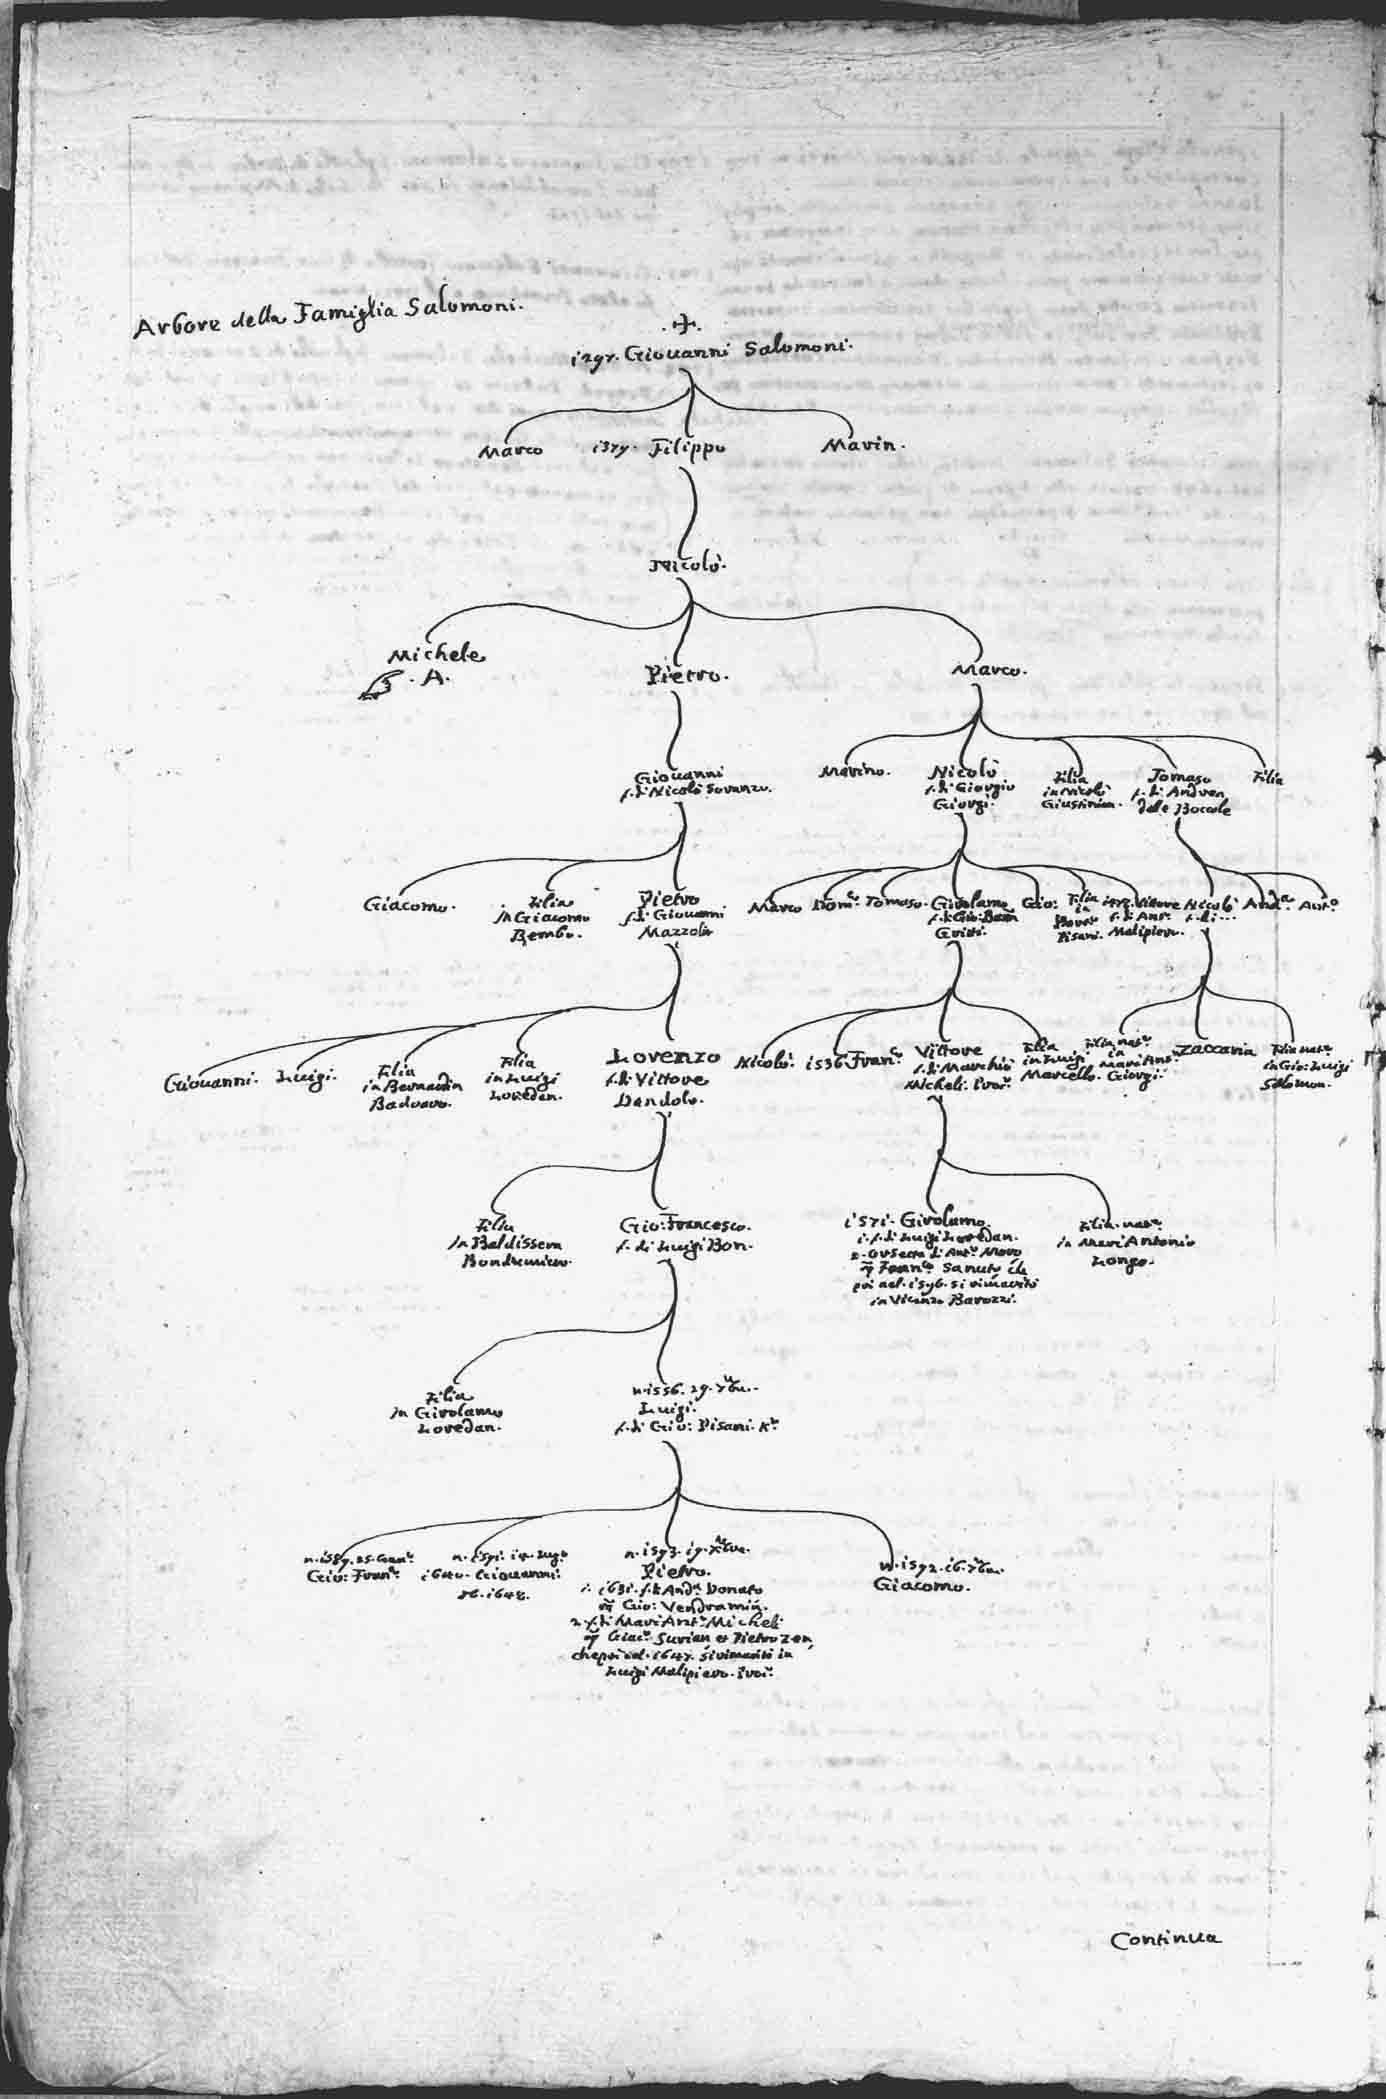 Arbore della Famiglia Salomoni.
1297. Giouanni Salomoni.
Marco 1379. Filippo Marin.
Nicolò.
Michele
. A.
Pietro.
Marco.
Giouanni
f. di Nicolò Soranzo.
Marino.
Nicolò
f. di Giorgio
Giorgi.
Filia
in Nicolò
Giustinian.
Tomaso
f. di Andrea
dale Boccole
Filia
Giacomo.
Filia
in Giacomo
Bembo.
Pietro
f. di Giouanni
Mazzola
Marco Domco. Tomaso.
Girolamo
f. di Gio: Batta
Gritti.
Gio:
Filia
in
Pisani.
Vittore
f. di Ant.
Malipiero.
Nicolò
f. di ...
Anda. Anto.
Giouanni. Luigi.
Filia
in Bernardin
Badoaro.
Filia
in Luigi
Loredan.
Lorenzo
f. di Vittore
Dandolo.
Nicolò. 1536 Franco.
Vittore
f. di Marchiò
Micheli. Procr.
Filia
in Luigi
Marcello.
Filia natle
in
Marc'Anto
Giorgi.
Zaccaria
Filia natle
in Gio: Luigi
Salomon.
Filia
in Baldissera
Bondumiero.
Gio: Francesco.
f. di Luigi Bon.
1571. Girolamo.
1. f. di Luigi Loredan.
2. Orsetta di Anto. Moro
qm Franco Sanuto che
poi nel. 1596. si rimaritò
in Vicenzo Barozzi.
Filia natle
in Marc'Antonio
Longo.
Filia
in Girolamo
Loredan.
n. 1556. 29. 7bre.
Luigi.
f. di Gio: Pisani. Kr
n. 1589. 25. Genro
Gio: Franco.
n. 1591. 14. Lugo
1640. Giouanni
1648.
n. 1593. 19. Xbre.
Pietro.
1. 1631. f. di Anda Donato
qm Gio: Vendramin.
2. f. di Marc'Anto Micheli
qm Giaco. Surian et Pietro Zen,
che poi nel. 1647. si rimaritò in
Luigi Malipiero. Procr.
n. 1592. 16. 7bre.
Giacomo.
Continua